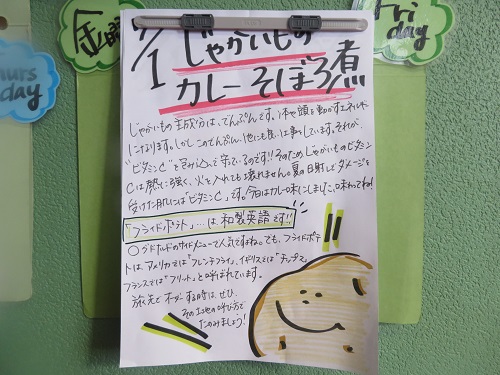 金曜
Fri
day
hurs
day
7/1
じゃがいもの
カレーそぼろ煮
じゃがいもの主成分は、でんぷんです。体や頭を動かすエネルギー
になります。しかしこのでんぷん、他にも良い仕事しています。それが、
"ビタミンC"を包み込んで守っているのです!!そのため、じゃがいものビタミン
Cは熱に強く、火を入れても壊れません。夏の日射しでダメージを
受けた肌には"ビタミンC"です。今日はカレー味にしました。味わってね!
「フライドポテト」…は和製英語です!!
○クドナルドのサイドメニューで人気ですよね。でも、フライドポテ
トは、アメリカでは「フレンチフライ」、イギリスでは「チップス」、
フランスでは「フリット」と呼ばれています。
旅先でオーダーする時は、ぜひ、
その土地の呼び方で
たのみましょう!